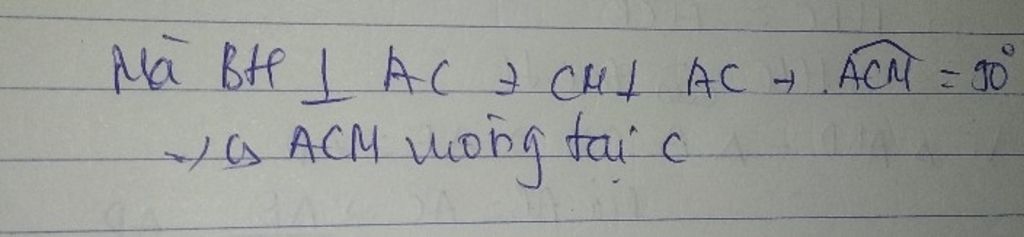 Mà BH ⊥ AC → CM ⊥ AC → ∠ACM = 90°
→ Δ ACM vuông tại C